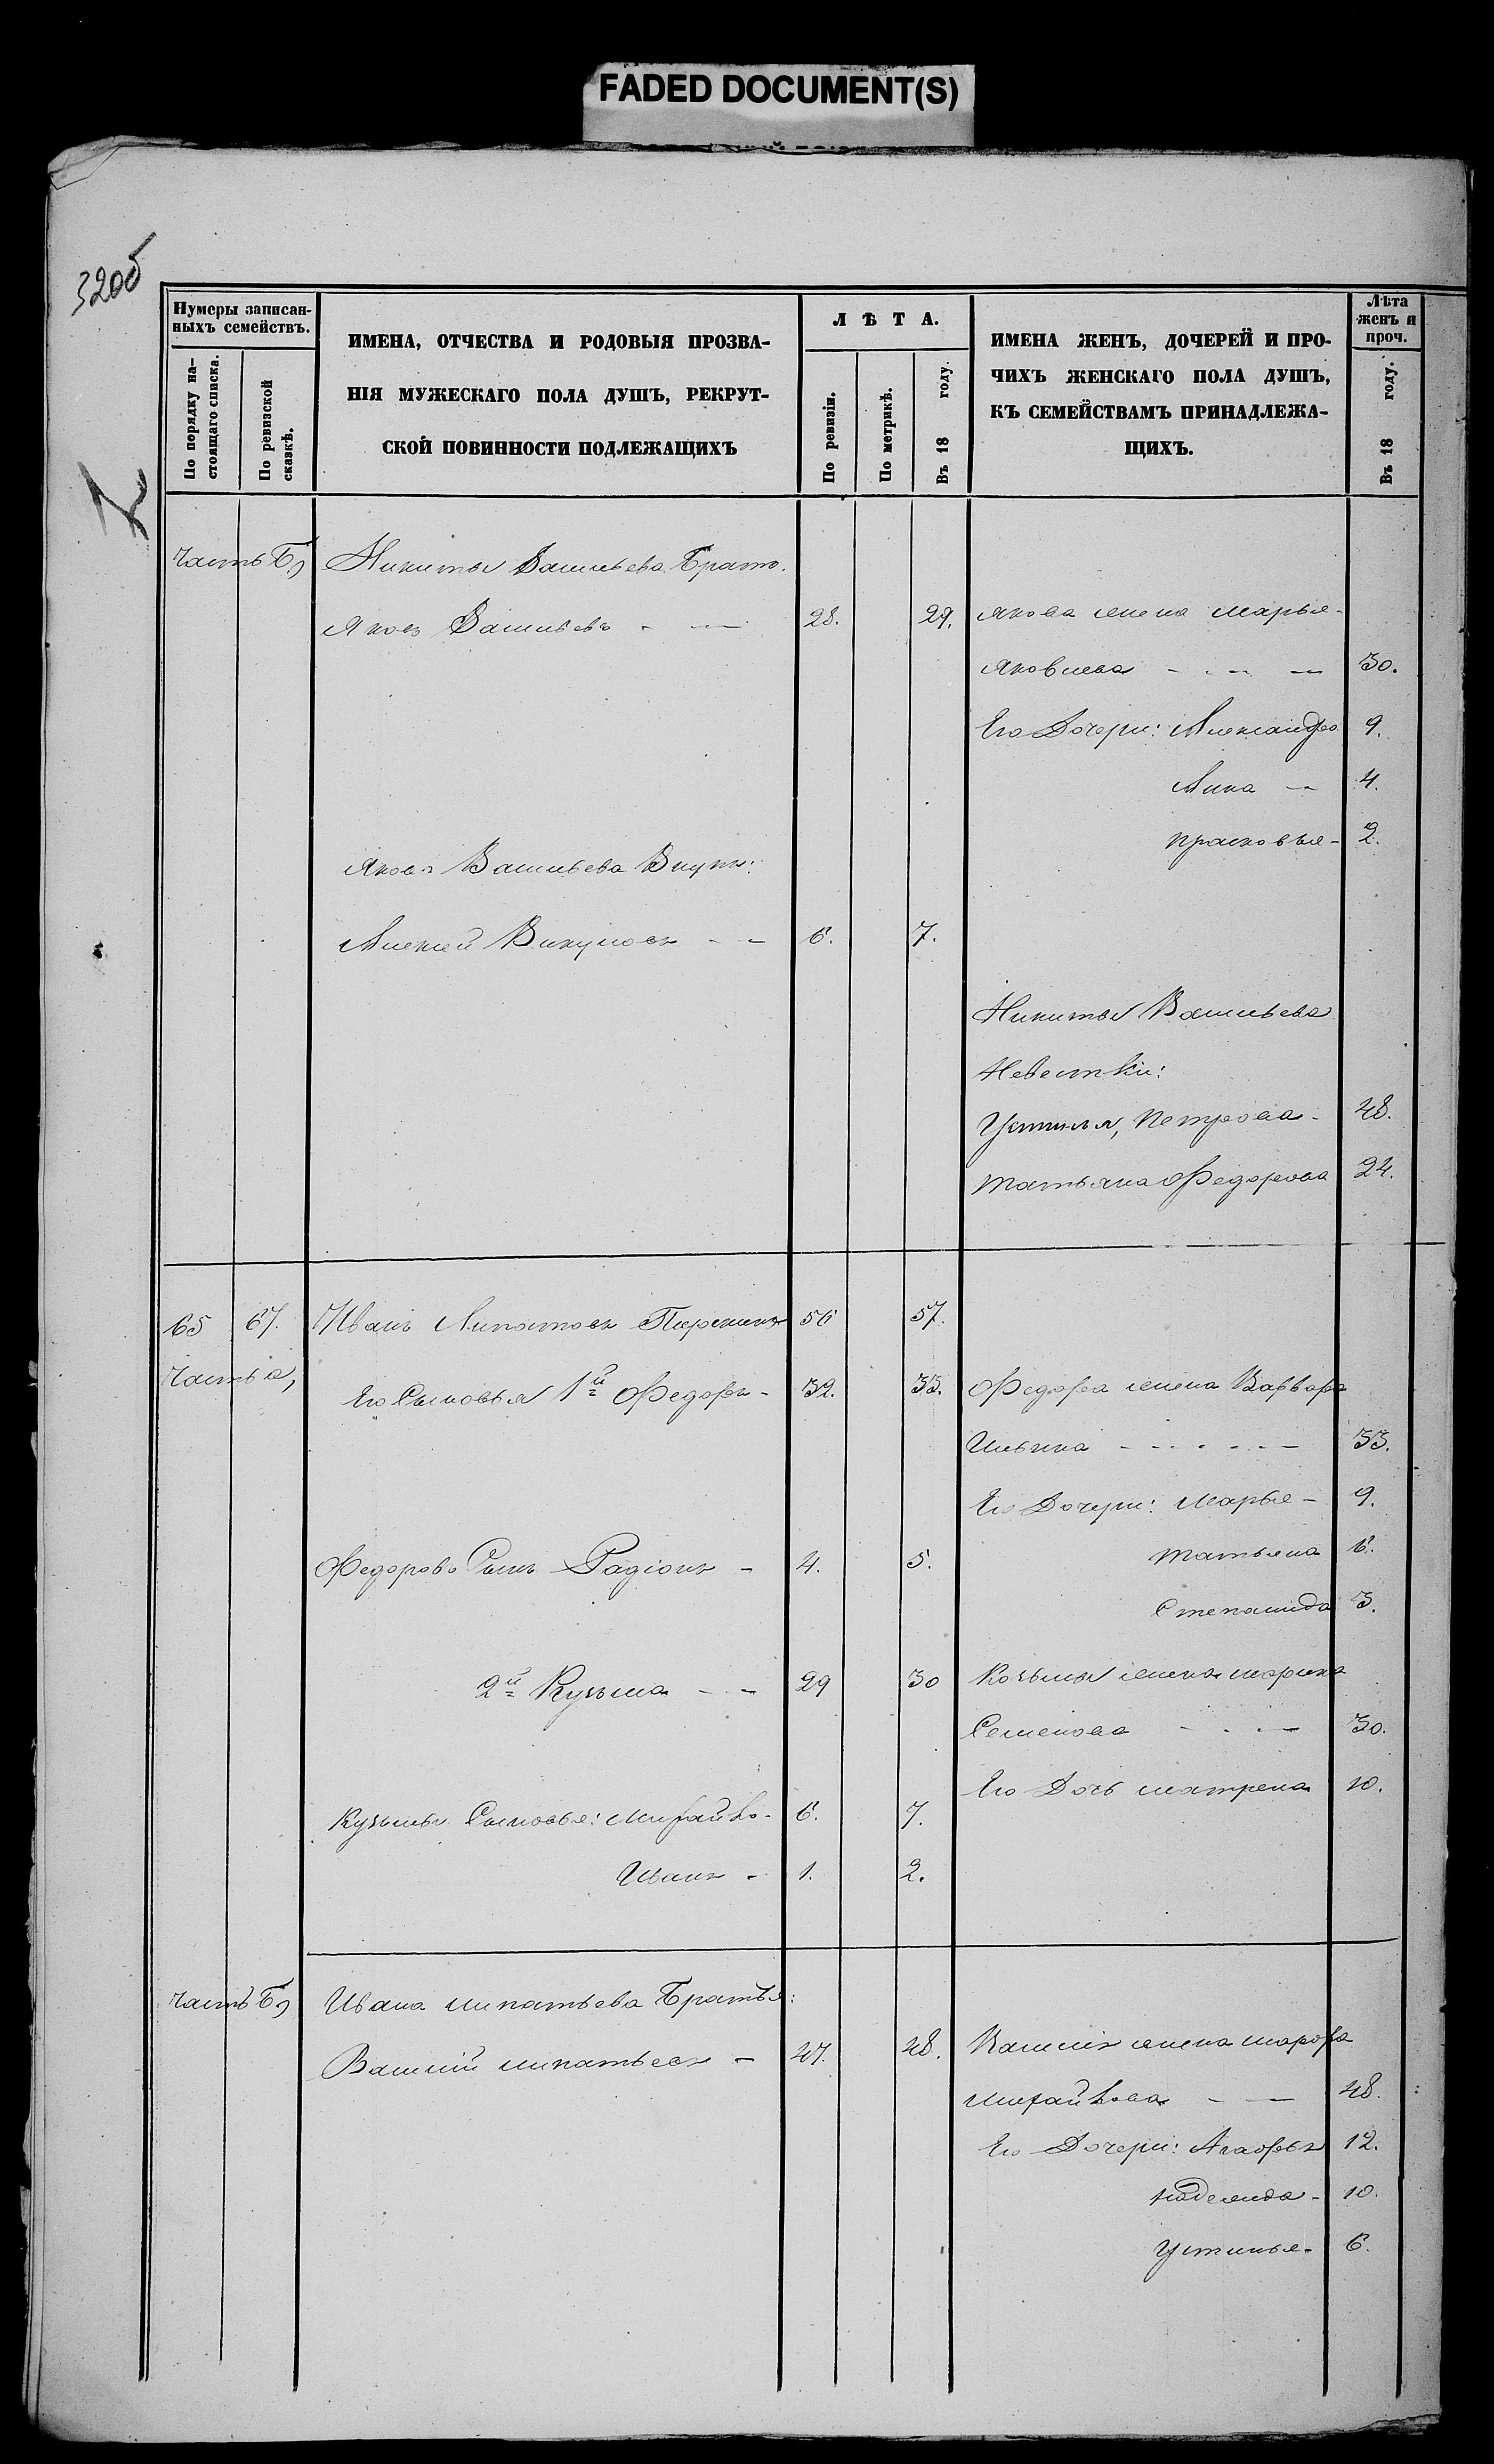 FADED DOCUMENT(S)
320об
Нумеры записан-
ныхъ семействъ.
По порядку на-
стоящаго списка.
По ревизской
сказкѣ.
ИМЕНА, ОТЧЕСТВА И РОДОВЫЯ ПРОЗВА-
НІЯ МУЖЕСКАГО ПОЛА ДУШЪ, РЕКРУТ-
СКОЙ ПОВИННОСТИ ПОДЛЕЖАЩИХЪ
ЛѢТА.
По ревизіи.
По метрикѣ.
Въ 18 году.
ИМЕНА ЖЕНЪ, ДОЧЕРЕЙ И ПРО-
ЧИХЪ ЖЕНСКАГО ПОЛА ДУШЪ,
КЪ СЕМЕЙСТВАМЪ ПРИНАДЛЕЖА-
ЩИХЪ.
Лѣта
женъ и
проч.
Въ 18 году.
Часть Б, Никиты Васильева Братъ.
Яковъ Васильевъ - — 28. 29. Якова жена Марья -
Яковлева - - - — 30.
Его Дочери: Александра 9.
Анна — 4.
Прасковья - 2.
Якова Васильева Внукъ:
Алексей Викуловъ - - 6. 7.
Никиты Васильева
Невестки:
Устинья, Петрова - 48.
Татьяна Федорова 24.
65 67. Иванъ Липатовъ 56 57.
Часть а, Его Сыновья 1й Федоръ - 32. 33. Федора жена Варвара
Ильина - - - - - — 33.
Его Дочери: Марья - 9.
Федорова Сынъ Радіонъ - 4. 5. Татьяна 6.
Степанида 3.
2й Кузьма - - 29 30 Козьмы жена Марина
Семенова - - - — 30.
Его Дочь Матрена 10.
Кузьмы Сыновья: Михайло - 6. 7.
Иванъ - 1. 2.
Часть Б, Ивана Липатьева Братья:
Василій Липатьевъ - 47. 48. Василія жена
Михайлова - — 48.
Его Дочери: Агафья 12.
Надежда - 10.
Устинья - 6.